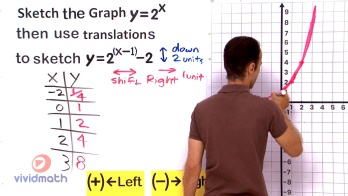 Sketch the Graph y=2^x
then use translations
to sketch y=2^(x-1)-2
down
2 units
shift Right 1unit
X Y
-2 1/4
0 1
1 2
2 4
3 8
vividmath
(+)←Left (-)→
9
8
7
6
5
4
3
2
1